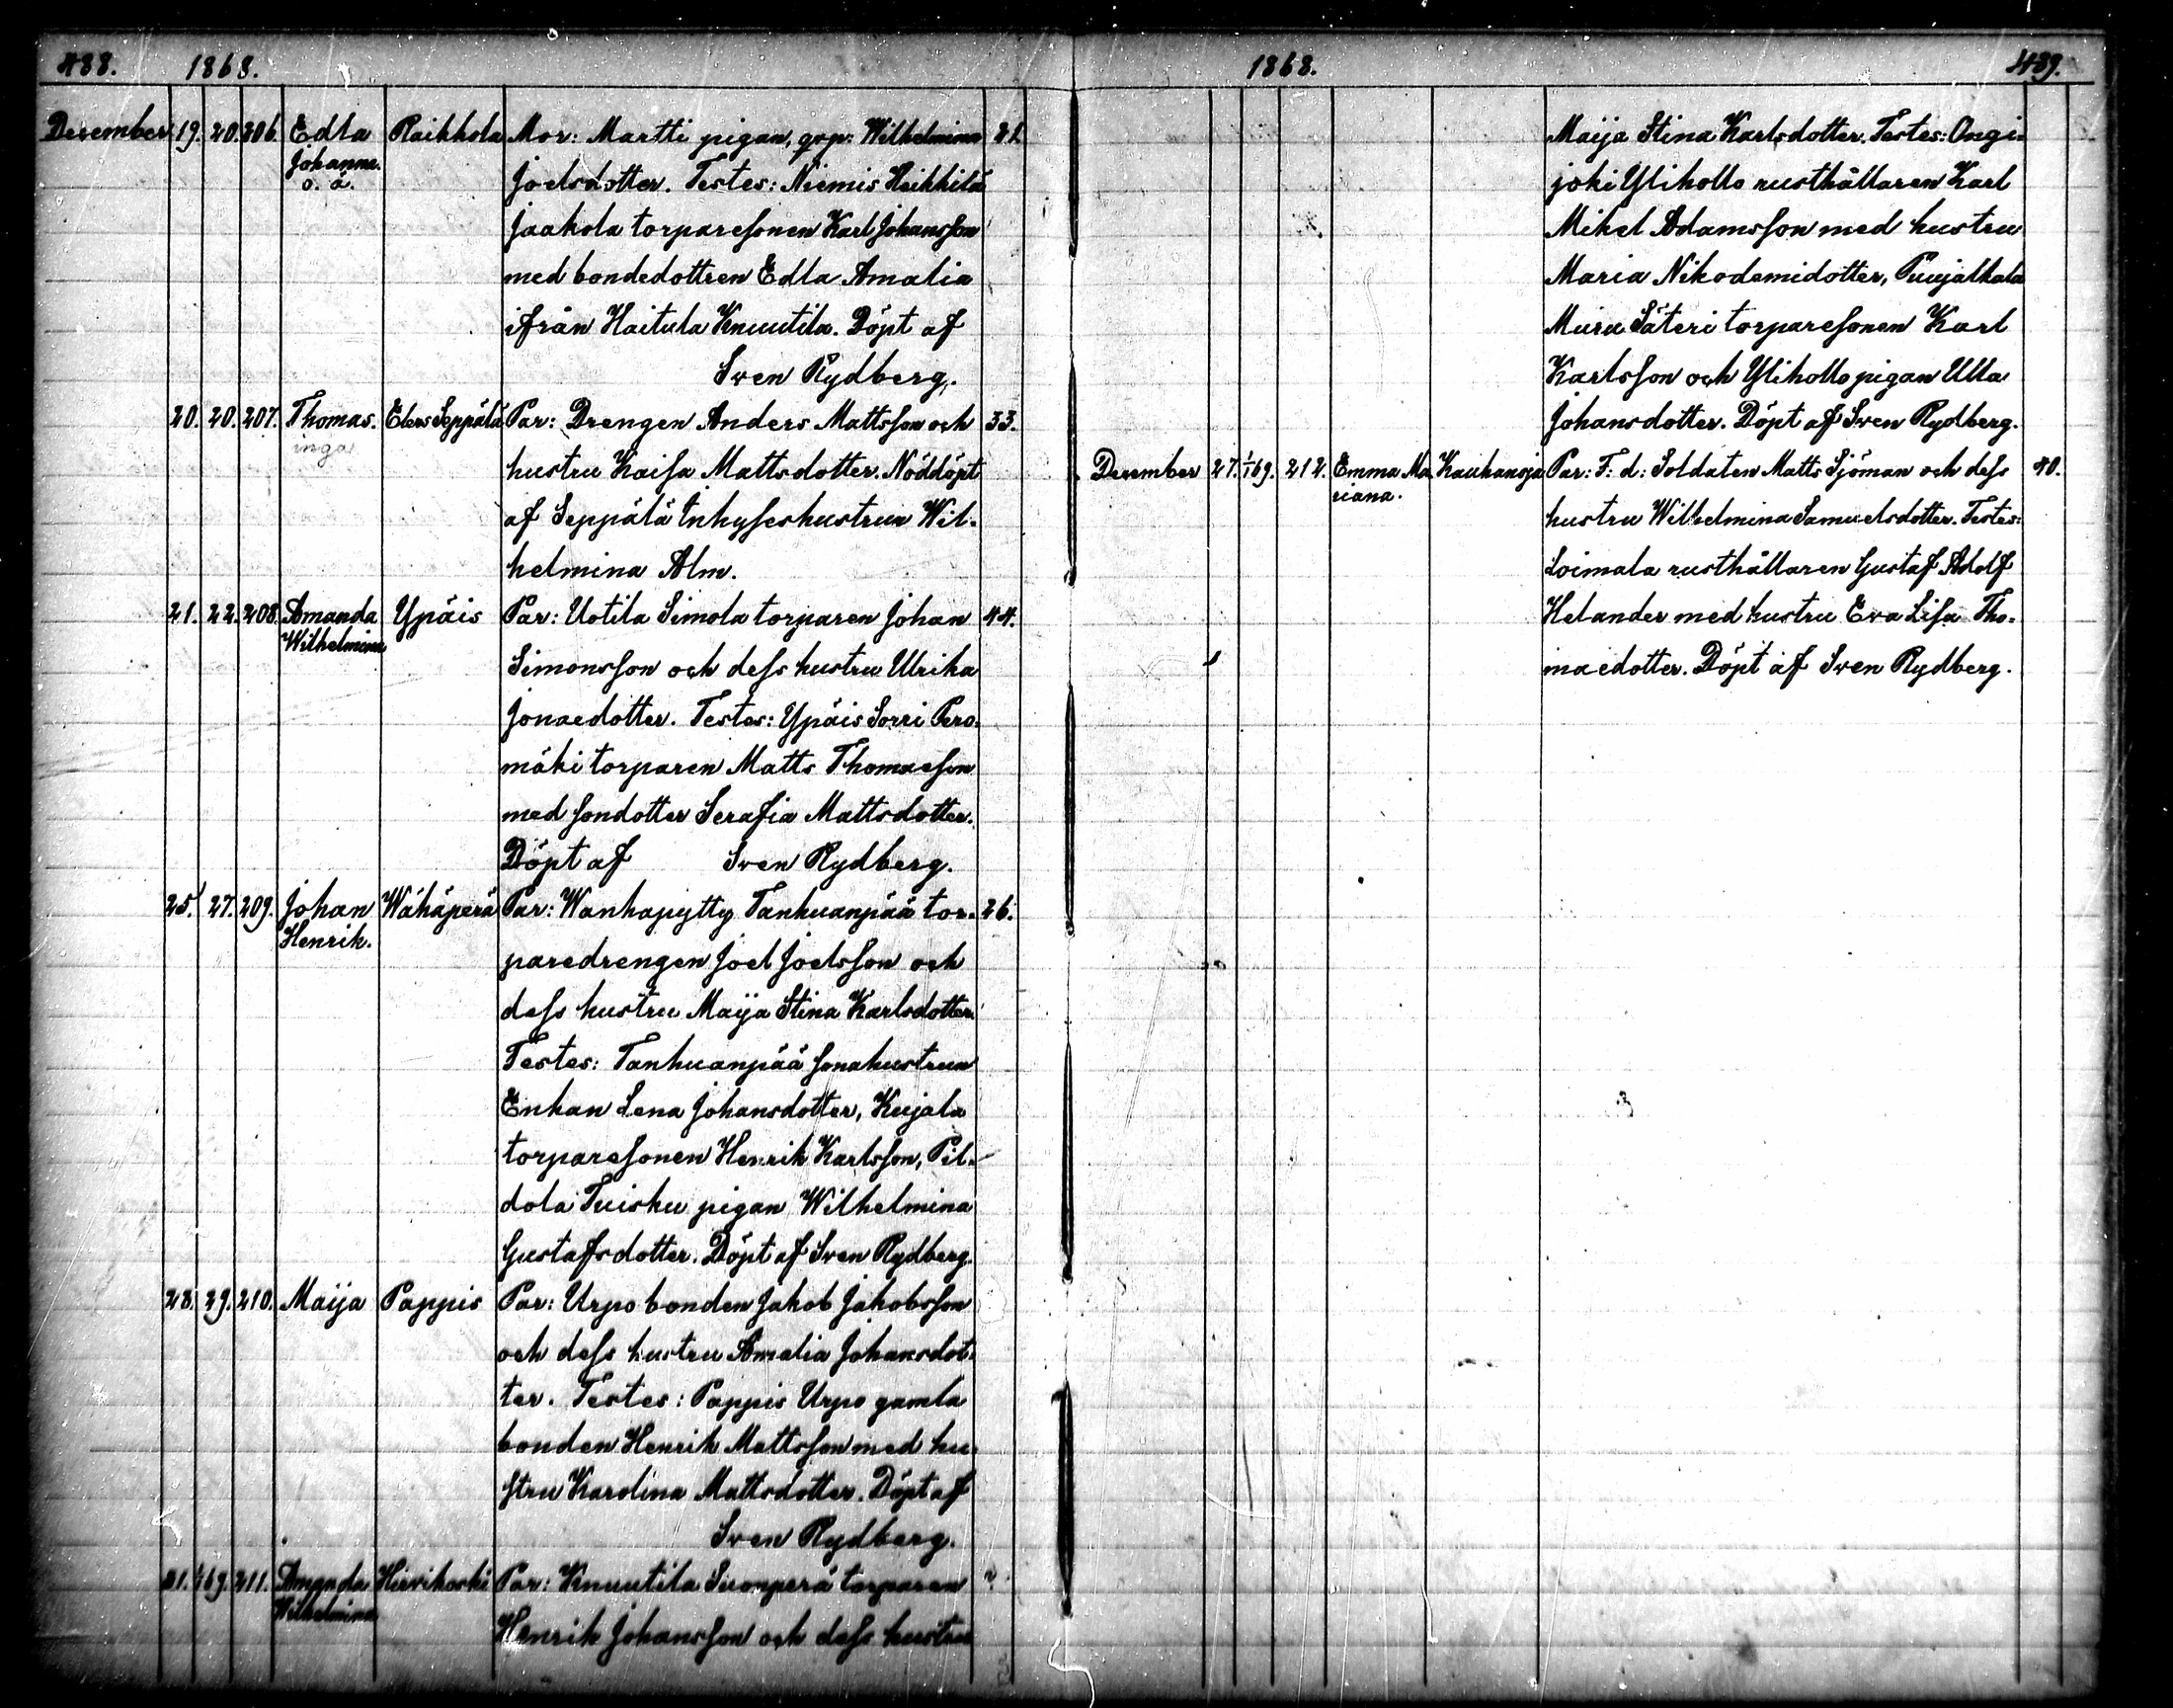 488. 1868.
December 19. 20. 206. Edla Raikkola Mor: Martti pigan, qvp: Wilhelmina 21.
Johanna. Joelsdotter. Testes: Niemis Heikkilä
o. ä.
Jaakola torparesonen Karl Johansson
med bondedottren Edla Amalia
ifrån Haitula Knuutila. Döpt af
Sven Rydberg.
20. 20. 207. Thomas. Elers Seppälä Par: Drengen Anders Mattsson och 33.
inga
hustru Kaisa Mattsdotter. Nöddöpt
af Seppälä Inhyseshustrun Wil-
helmina Alm.
21. 22. 208. Amanda Ypäis Par: Uotila Simola torparen Johan 44.
Wilhelmina
Simonsson och dess hustru Ulrika
Jonaedotter. Testes: Ypäis Sorri Pero-
mäki torparen Matts Thomaeson
med sondotter Serafia Mattsdotter.
Döpt af Sven Rydberg.
25. 27. 209. Johan Wähäperä Par: Wanhapytty Tanhuanpää tor- 26.
Henrik.
paredrengen Joel Joelsson och
dess hustru Maija Stina Karlsdotter.
Testes: Tanhuanpää sonahustrun
Enkan Lena Johansdotter, Kujala
torparesonen Henrik Karlsson, Pil-
dola Tuisku pigan Wilhelmina
Gustafsdotter. Döpt af Sven Rydberg.
28. 29. 210. Maija Pappis Par: Urpo bonden Jakob Jakobsson
och dess hustru Amalia Johansdot-
ter. Testes: Pappis Urpo gamla
bonden Henrik Mattsson med hu-
stru Karolina Mattsdotter. Döpt af
Sven Rydberg.
21. 1/69. 211. Amanda Hirvikoski Par: Knuutila Suonperä torparen ?
Wilhelmina
Henrik Johansson och dess hustru
1868. 489.
Maija Stina Karlsdotter. Testes: Ongi-
joki Ylihollo rusthållaren Karl
Mikel Adamsson med hustru
Maria Nikodemidotter, Puujalkala
Muru Säteri torparesonen Karl
Karlsson och Ylihollo pigan Ulla
Johansdotter. Döpt af Sven Rydberg.
December 27. 1/1 69. 212. Emma Ma Kauhanoja Par: F: d: Soldaten Matts Sjöman och dess 40.
riana.
hustru Wilhelmina Samuelsdotter. Testes:
Loimala rusthållaren Gustaf Adolf
Helander med hustru Eva Lisa Tho-
maedotter. Döpt af Sven Rydberg.